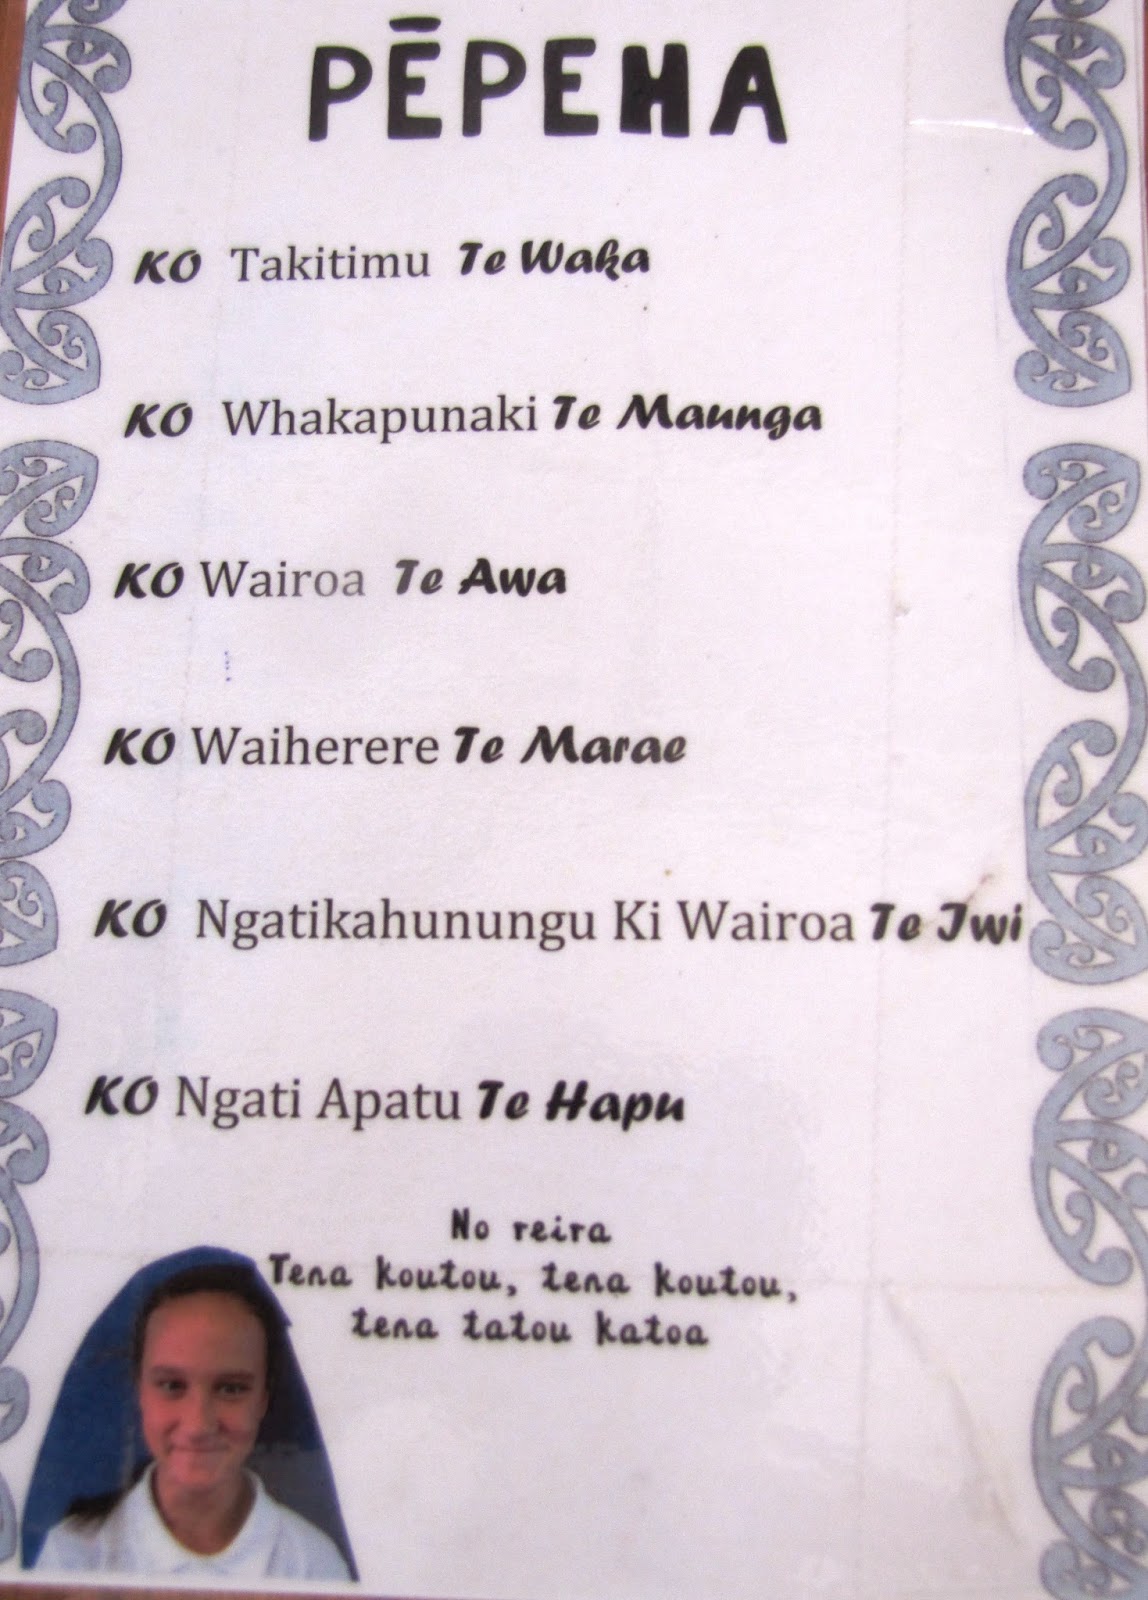 PĒPEHA
KO Takitimu Te Waka
KO Whakapunaki Te Maunga
KO Wairoa Te Awa
KO Waiherere Te Marae
KO Ngatikahunungu Ki Wairoa Te Iwi
KO Ngati Apatu Te Hapu
No reira
Tena koutou, tena koutou,
tena tatou katoa